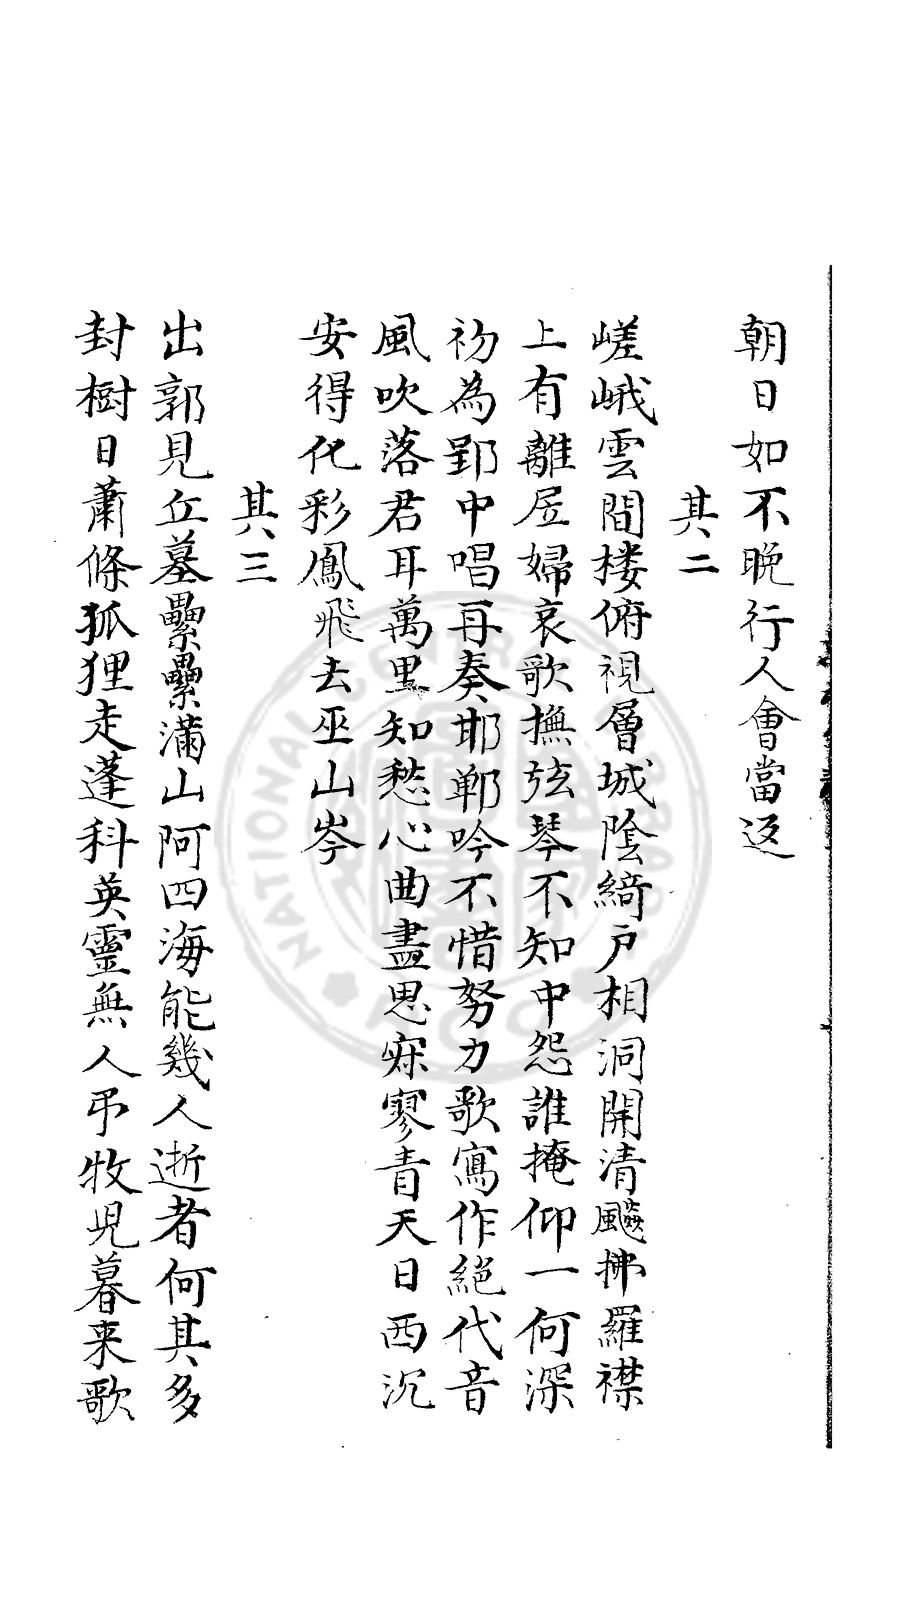 朝日如不晚行人會當返
其二
嵯峨雲間楼俯視層城陰綺戶相洞開清飈拂羅襟
上有離居婦哀歌撫弦琴不知中怨誰掩仰一何深
初為郢中唱再奏邯鄲吟不惜努力歌寫作絕代音
風吹落君耳萬里知愁心曲盡思寂寥青天日西沉
安得化彩鳳飛去巫山岑
其三
出郭見丘墓纍纍滿山阿四海能幾人逝者何其多
封樹日蕭條狐狸走蓬科英靈無人弔牧児暮来歌
NATIONAL CENTRAL LIBRARY